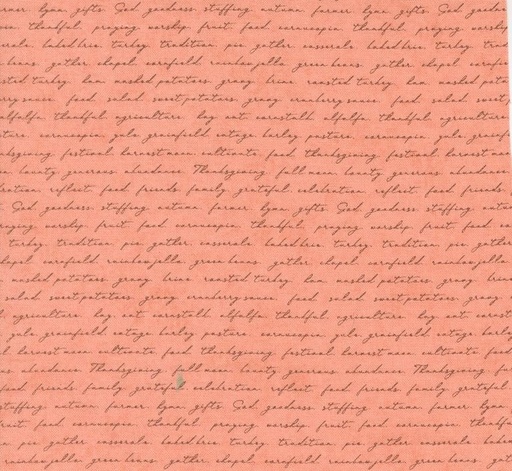 farmer lynn gifts God goodness stuffing autumn farmer lynn gifts God goodness
thankful praying worship fruit food cornucopia thankful praying worship
casserole baked brie turkey tradition pie gather casserole baked brie turkey
green beans gather chapel cornfield green beans gather chapel
roasted turkey ham mashed potatoes gravy brine roasted turkey ham mashed
cranberry sauce food salad sweet potatoes gravy cranberry sauce food salad sweet
alfalfa thankful agriculture hay oat cornstalk alfalfa thankful agriculture
pasture cornucopia yule grainfield barley pasture cornucopia yule
thanksgiving festival harvest moon cultivate food thanksgiving festival harvest moon
bounty generous abundance Thanksgiving full moon bounty generous abundance
celebration reflect food friends family grateful celebration reflect food friends
God goodness stuffing autumn farmer lynn gifts God goodness stuffing
praying worship fruit food cornucopia thankful praying worship fruit food
turkey tradition pie gather casserole baked brie turkey tradition pie gather
chapel cornfield green beans gather chapel cornfield
mashed potatoes gravy brine roasted turkey ham mashed potatoes gravy brine
salad sweet potatoes gravy cranberry sauce food salad sweet potatoes gravy
agriculture hay oat cornstalk alfalfa thankful agriculture hay oat
yule grainfield barley pasture cornucopia yule grainfield
harvest moon cultivate food thanksgiving festival harvest moon cultivate food
abundance Thanksgiving full moon bounty generous abundance Thanksgiving
food friends family grateful celebration reflect food friends family grateful
stuffing autumn farmer lynn gifts God goodness stuffing autumn farmer lynn
fruit food cornucopia thankful praying worship fruit food cornucopia thankful
pie gather casserole baked brie turkey tradition pie gather casserole
green beans gather chapel cornfield green beans